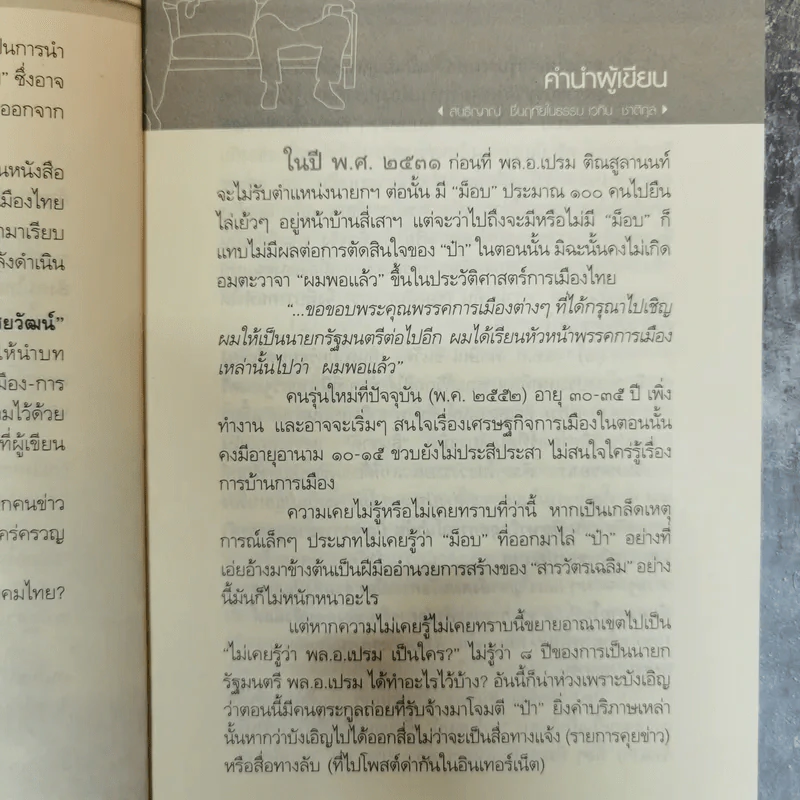 ป็นการนำ
” ซึ่งอาจ
ออกจาก
นหนังสือ
มืองไทย
ามาเรียบ
ลังดำเนิน
ชยวัฒน์”
ให้นำบท
มือง-การ
ามไว้ด้วย
ที่ผู้เขียน
ากคนข่าว
คร่ครวญ
คมไทย?
คำนำผู้เขียน
สนธิญาณ ชื่นฤทัยในธรรม เวทิน ชาติกุล
ในปี พ.ศ. ๒๕๓๑ ก่อนที่ พล.อ.เปรม ติณสูลานนท์
จะไม่รับตำแหน่งนายกฯ ต่อนั้น มี “ม็อบ” ประมาณ ๑๐๐ คนไปยืน
ไล่เย้วๆ อยู่หน้าบ้านสี่เสาฯ แต่จะว่าไปถึงจะมีหรือไม่มี “ม็อบ” ก็
แทบไม่มีผลต่อการตัดสินใจของ “ป๋า” ในตอนนั้น มิฉะนั้นคงไม่เกิด
อมตะวาจา “ผมพอแล้ว” ขึ้นในประวัติศาสตร์การเมืองไทย
“...ขอขอบพระคุณพรรคการเมืองต่างๆ ที่ได้กรุณาไปเชิญ
ผมให้เป็นนายกรัฐมนตรีต่อไปอีก ผมได้เรียนหัวหน้าพรรคการเมือง
เหล่านั้นไปว่า ผมพอแล้ว”
คนรุ่นใหม่ที่ปัจจุบัน (พ.ค. ๒๕๕๒) อายุ ๓๐-๓๕ ปี เพิ่ง
ทำงาน และอาจจะเริ่มๆ สนใจเรื่องเศรษฐกิจการเมืองในตอนนั้น
คงมีอายุอานาม ๑๐-๑๕ ขวบยังไม่ประสีประสา ไม่สนใจใคร่รู้เรื่อง
การบ้านการเมือง
ความเคยไม่รู้หรือไม่เคยทราบที่ว่านี้ หากเป็นเกล็ดเหตุ
การณ์เล็กๆ ประเภทไม่เคยรู้ว่า “ม็อบ” ที่ออกมาไล่ “ป๋า” อย่างที่
เอ่ยอ้างมาข้างต้นเป็นฝีมืออำนวยการสร้างของ “สารวัตรเฉลิม” อย่าง
นี้มันก็ไม่หนักหนาอะไร
แต่หากความไม่เคยรู้ไม่เคยทราบนี้ขยายอาณาเขตไปเป็น
“ไม่เคยรู้ว่า พล.อ.เปรม เป็นใคร?” ไม่รู้ว่า ๘ ปีของการเป็นนายก
รัฐมนตรี พล.อ.เปรม ได้ทำอะไรไว้บ้าง? อันนี้ก็น่าห่วงเพราะบังเอิญ
ว่าตอนนี้มีคนตระกูลถ่อยที่รับจ้างมาโจมตี “ป๋า” ยิ่งคำบริภาษเหล่า
นั้นหากว่าบังเอิญไปได้ออกสื่อไม่ว่าจะเป็นสื่อทางแจ้ง (รายการคุยข่าว)
หรือสื่อทางลับ (ที่ไปโพสต์ด่ากันในอินเทอร์เน็ต)